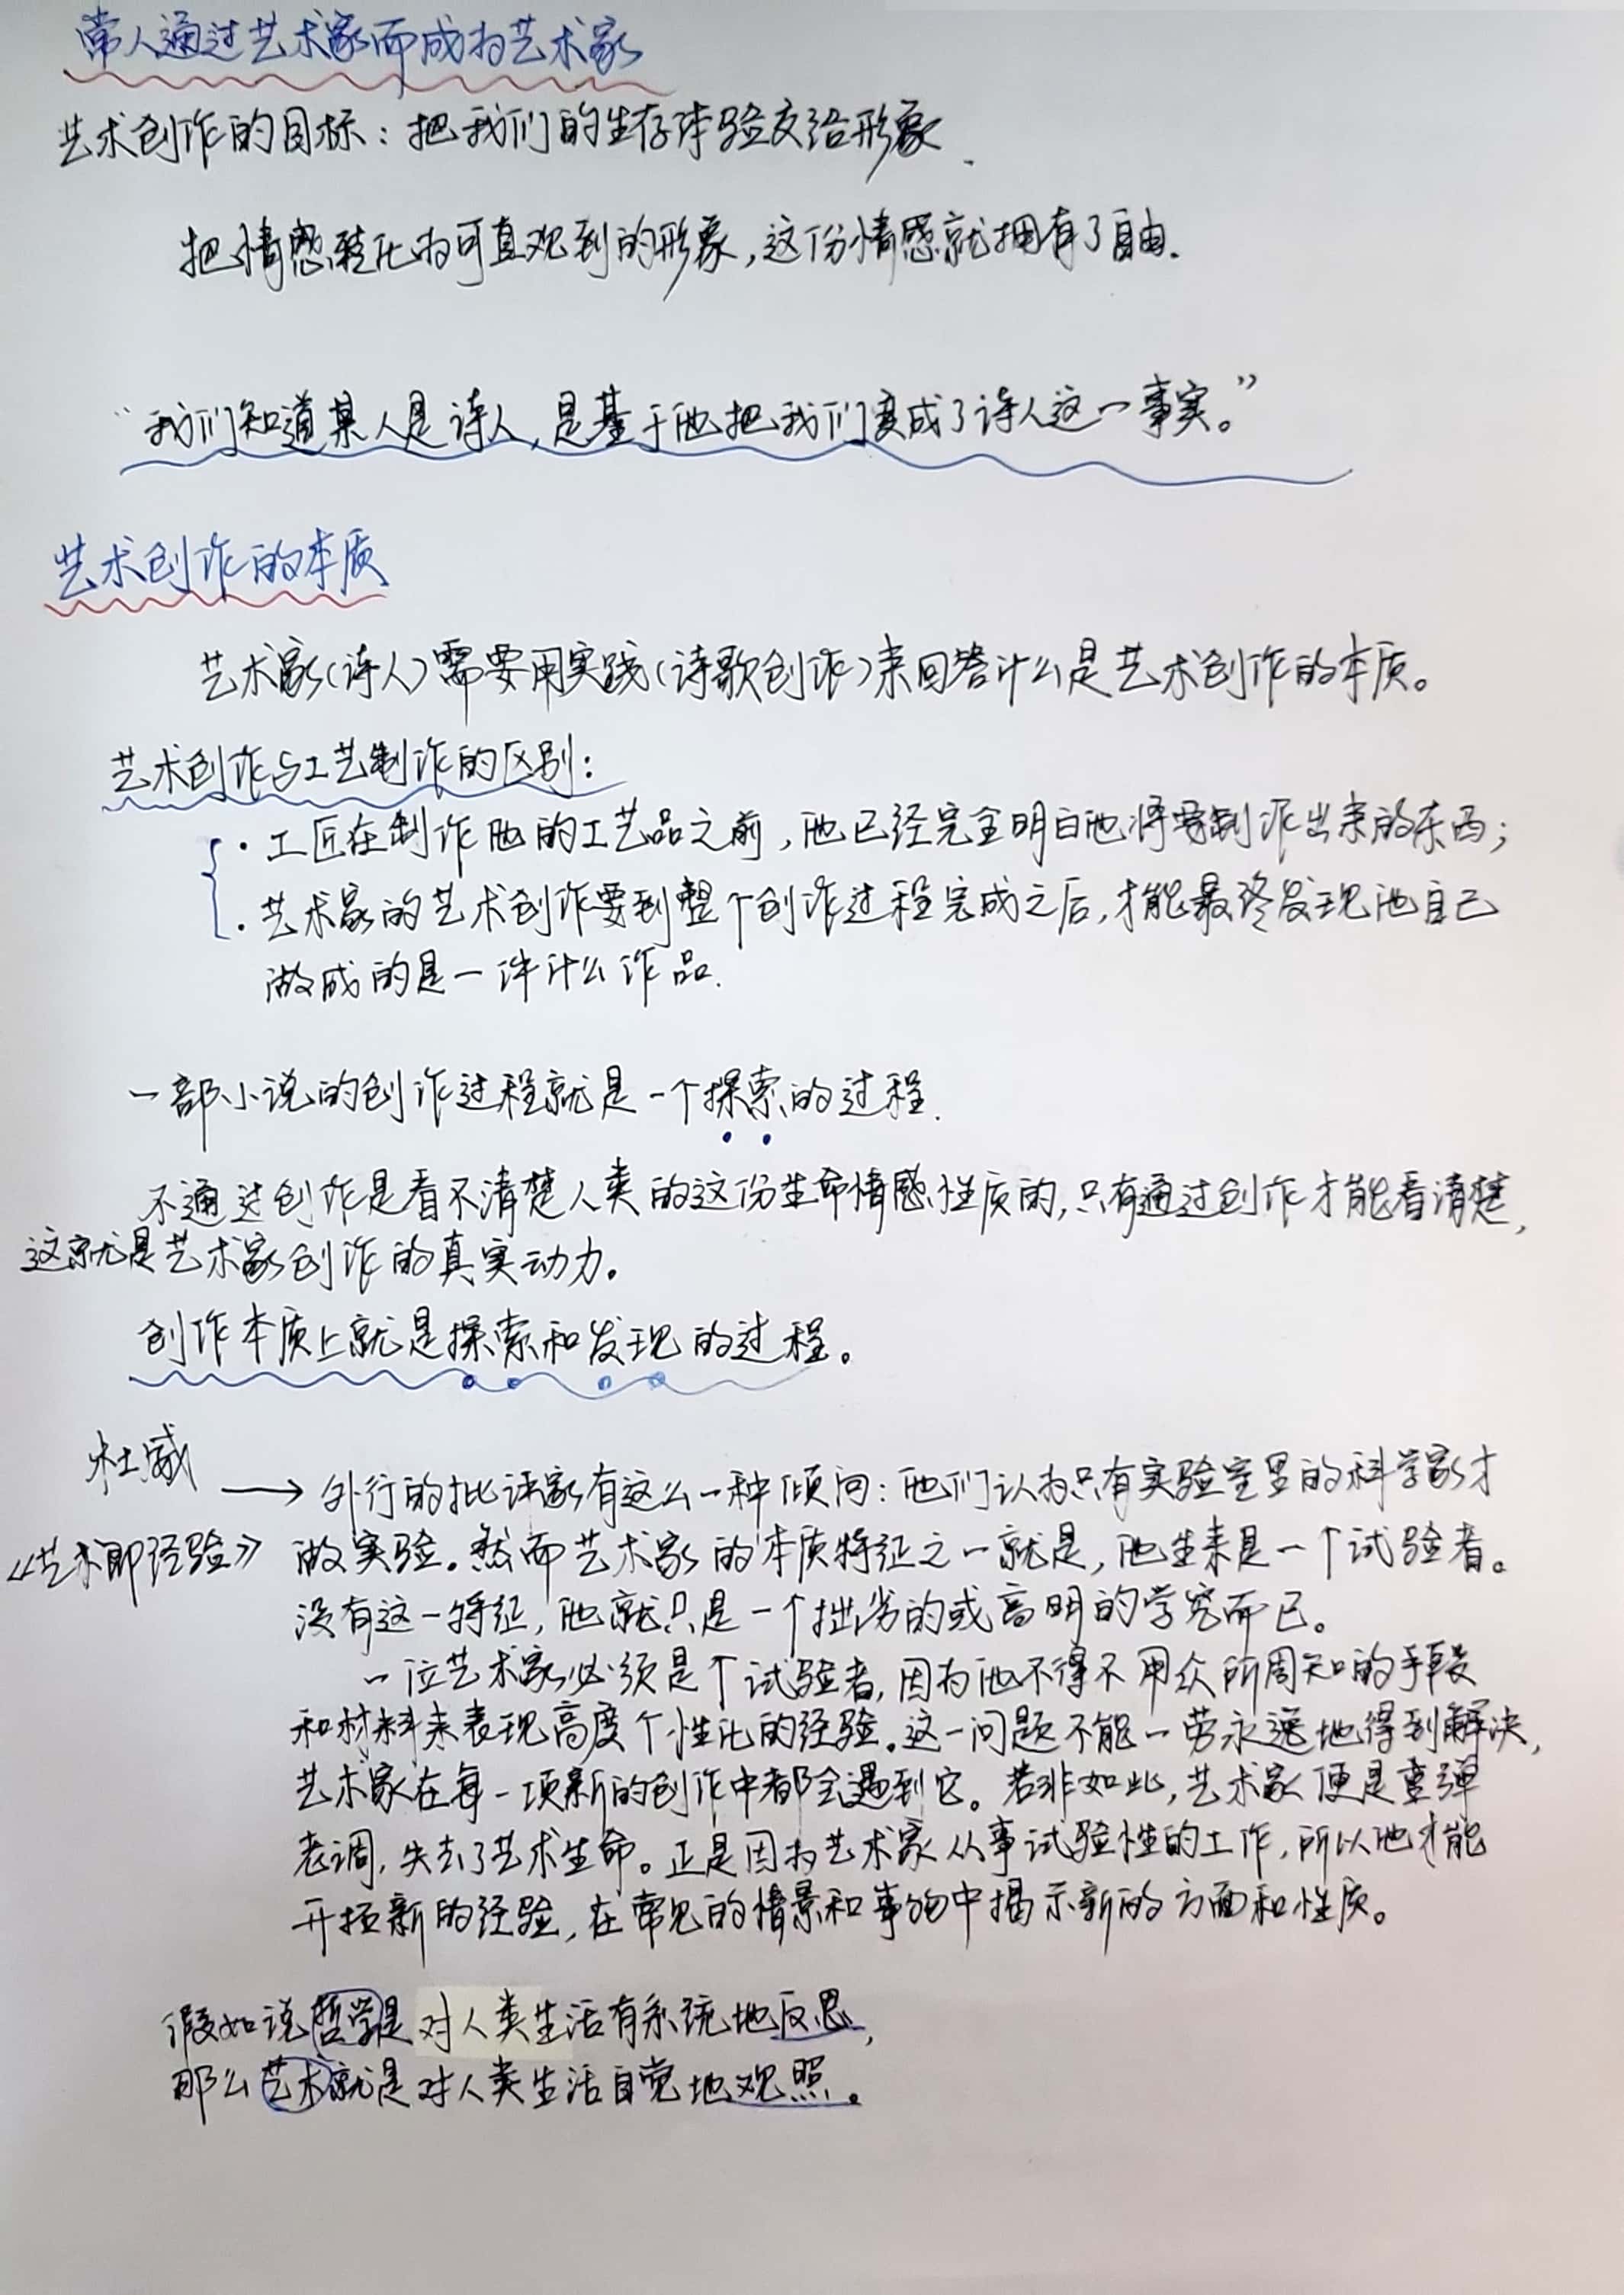 常人通过艺术家而成为艺术家
艺术创作的目标：把我们的生存体验交给形象.
把情感转化为可直观到的形象，这份情感就拥有了自由.
“我们知道某人是诗人，是基于他把我们变成了诗人这一事实。”
艺术创作的本质
艺术家（诗人）需要用实践（诗歌创作）来回答什么是艺术创作的本质。
艺术创作与工艺制作的区别：
·工匠在制作他的工艺品之前，他已经完全明白他将要制作出来的东西；
·艺术家的艺术创作要到整个创作过程完成之后，才能最终发现他自己
做成的是一件什么作品.
一部小说的创作过程就是一个探索的过程.
不通过创作是看不清楚人类的这份生命情感性质的，只有通过创作才能看清楚，
这就是艺术家创作的真实动力。
创作本质上就是探索和发现的过程。
杜威
《艺术即经验》
→ 外行的批评家有这么一种倾向：他们认为只有实验室里的科学家才
做实验。然而艺术家的本质特征之一就是，他生来是一个试验者。
没有这一特征，他就只是一个拙劣的或高明的学究而已。
一位艺术家必须是个试验者，因为他不得不用众所周知的手段
和材料来表现高度个性化的经验。这一问题不能一劳永逸地得到解决，
艺术家在每一项新的创作中都会遇到它。若非如此，艺术家便是重弹
老调，失去了艺术生命。正是因为艺术家从事试验性的工作，所以他才能
开拓新的经验，在常见的情景和事物中揭示新的方面和性质。
假如说哲学是对人类生活有系统地反思，
那么艺术就是对人类生活自觉地观照。